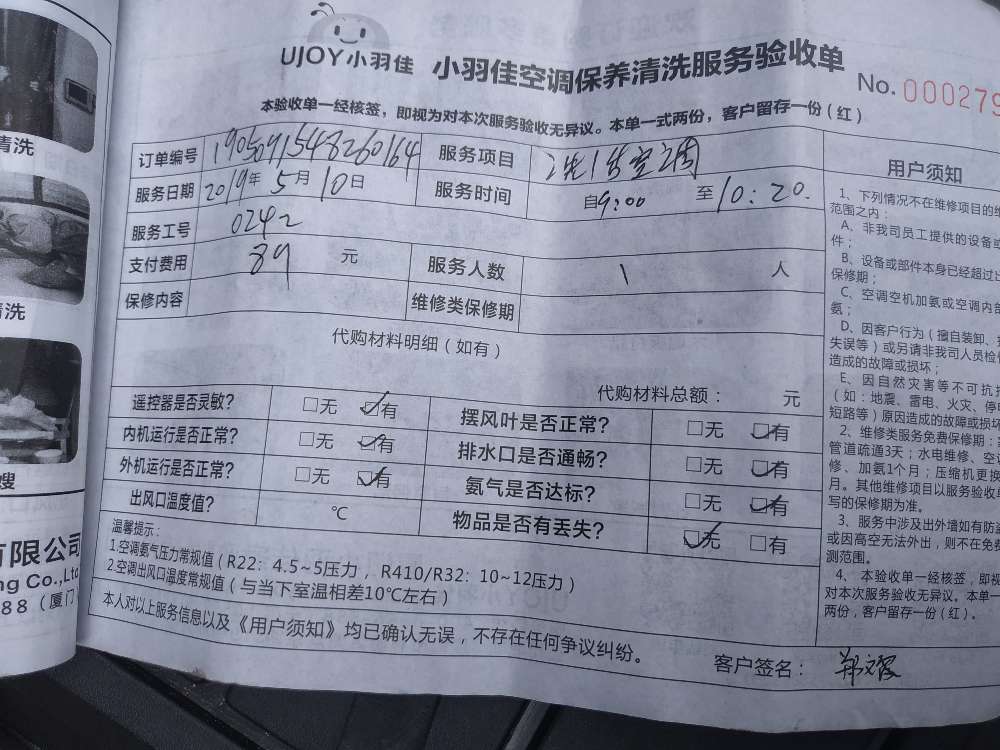 UJOY小羽佳 小羽佳空调保养清洗服务验收单
No. 000279
本验收单一经核签，即视为对本次服务验收无异议。本单一式两份，客户留存一份（红）
订单编号 1905091548260164 服务项目 洗1台空调
服务日期 2019年5月10日 服务时间 自9:00 至10:20.
服务工号 0242
支付费用 89 元 服务人数 1 人
保修内容 维修类保修期
代购材料明细（如有）
代购材料总额： 元
遥控器是否灵敏？ □无 ☑有 摆风叶是否正常？ □无 ☑有
内机运行是否正常？ □无 ☑有 排水口是否通畅？ □无 ☑有
外机运行是否正常？ □无 ☑有 氨气是否达标？ □无 ☑有
出风口温度值？ ℃ 物品是否有丢失？ ☑无 □有
温馨提示：
1.空调氨气压力常规值（R22：4.5~5压力，R410/R32：10~12压力）
2.空调出风口温度常规值（与当下室温相差10℃左右）
本人对以上服务信息以及《用户须知》均已确认无误，不存在任何争议纠纷。
客户签名：
用户须知
1、下列情况不在维修项目的维
范围之内：
A、非我司员工提供的设备或
件；
B、设备或部件本身已经超过
保修期；
C、空调空机加氨或空调内部
氨；
D、因客户行为（擅自装卸、
失误等）或另请非我司人员检
造成的故障或损坏；
E、因自然灾害等不可抗
（如：地震、雷电、火灾、停
短路等）原因造成的故障或损坏
2、维修类服务免费保修期：
管道疏通3天；水电维修、空
修、加氨1个月；压缩机更换
月。其他维修项目以服务验收单
写的保修期为准。
3、服务中涉及出外墙如有防
或因高空无法外出，则不在免费
测范围。
4、本验收单一经核签，即视
对本次服务验收无异议。本单一
两份，客户留存一份（红）。
清洗
清洗
嫂
有限公司
ng Co.,Ltd
88（厦门